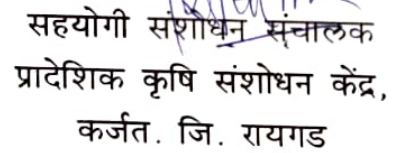 सहयोगी संशोधन संचालक
प्रादेशिक कृषि संशोधन केंद्र,
कर्जत. जि. रायगड